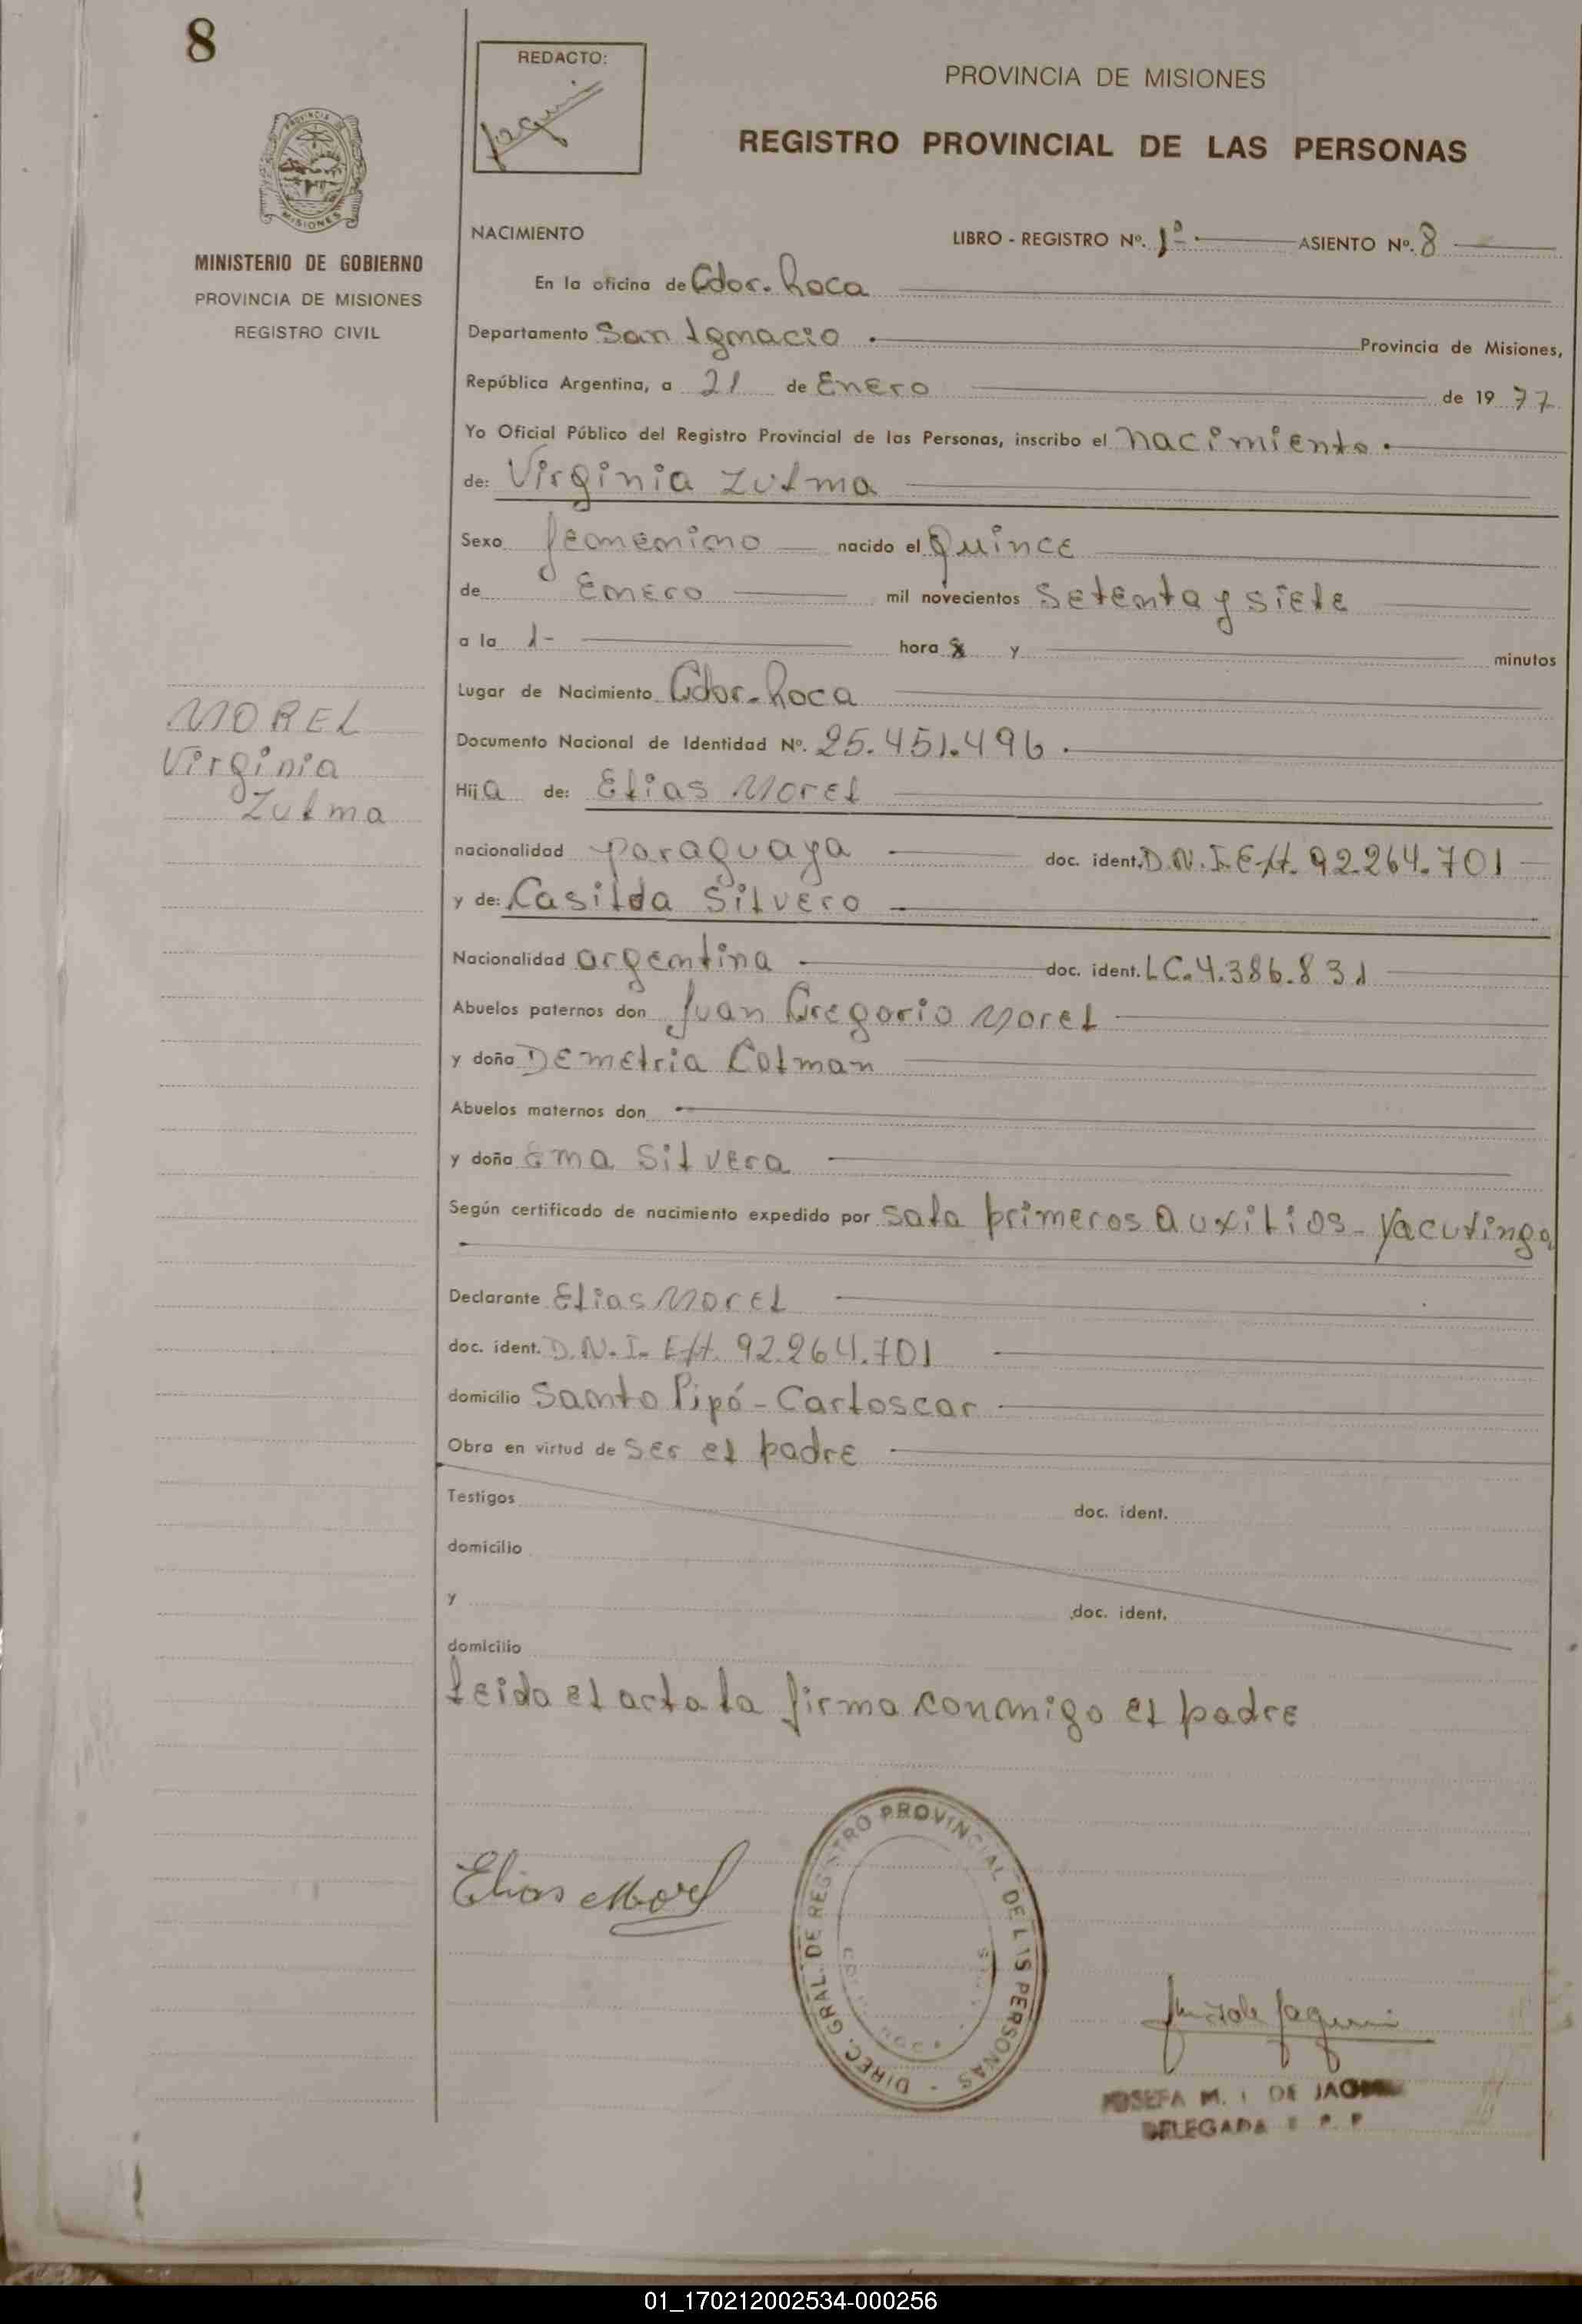 8
REDACTO:
PROVINCIA DE MISIONES
REGISTRO PROVINCIAL DE LAS PERSONAS
PROVINCIA DE
MISIONES
MINISTERIO DE GOBIERNO
PROVINCIA DE MISIONES
REGISTRO CIVIL
NACIMIENTO LIBRO - REGISTRO Nº. 1º ASIENTO Nº. 8
En la oficina de Gdor. Roca
Departamento San Ignacio Provincia de Misiones,
República Argentina, a 21 de Enero de 19 77
Yo Oficial Público del Registro Provincial de las Personas, inscribo el nacimiento.
de: Virginia Zulma
Sexo femenino nacido el Quince
de Enero mil novecientos setenta y siete
a la 1- hora y minutos
Lugar de Nacimiento Gdor. Roca
Documento Nacional de Identidad Nº. 25.451.496.
Hija de: Elias Morel
nacionalidad paraguaya doc. ident. D.N.I. Ext. 92.264.701
y de: Casilda Silvero
Nacionalidad argentina doc. ident. LC. 4.386.831
Abuelos paternos don Juan Gregorio Morel
y doña Demetria Colman
Abuelos maternos don
y doña Ema Silvera
Según certificado de nacimiento expedido por sala primeros auxilios - Yacutinga
Declarante Elias Morel
doc. ident. D.N.I. Ext. 92.264.701
domicilio Santo Pipó - Carloscar
Obra en virtud de ser el padre
Testigos doc. ident.
domicilio
y doc. ident.
domicilio
leida el acta la firma conmigo el padre
MOREL
Virginia
Zulma
Elias Morel
DIREC. GRAL. DE REGISTRO PROVINCIAL DE LAS PERSONAS
JOSEFA M. DE
DELEGADA
01_170212002534-000256